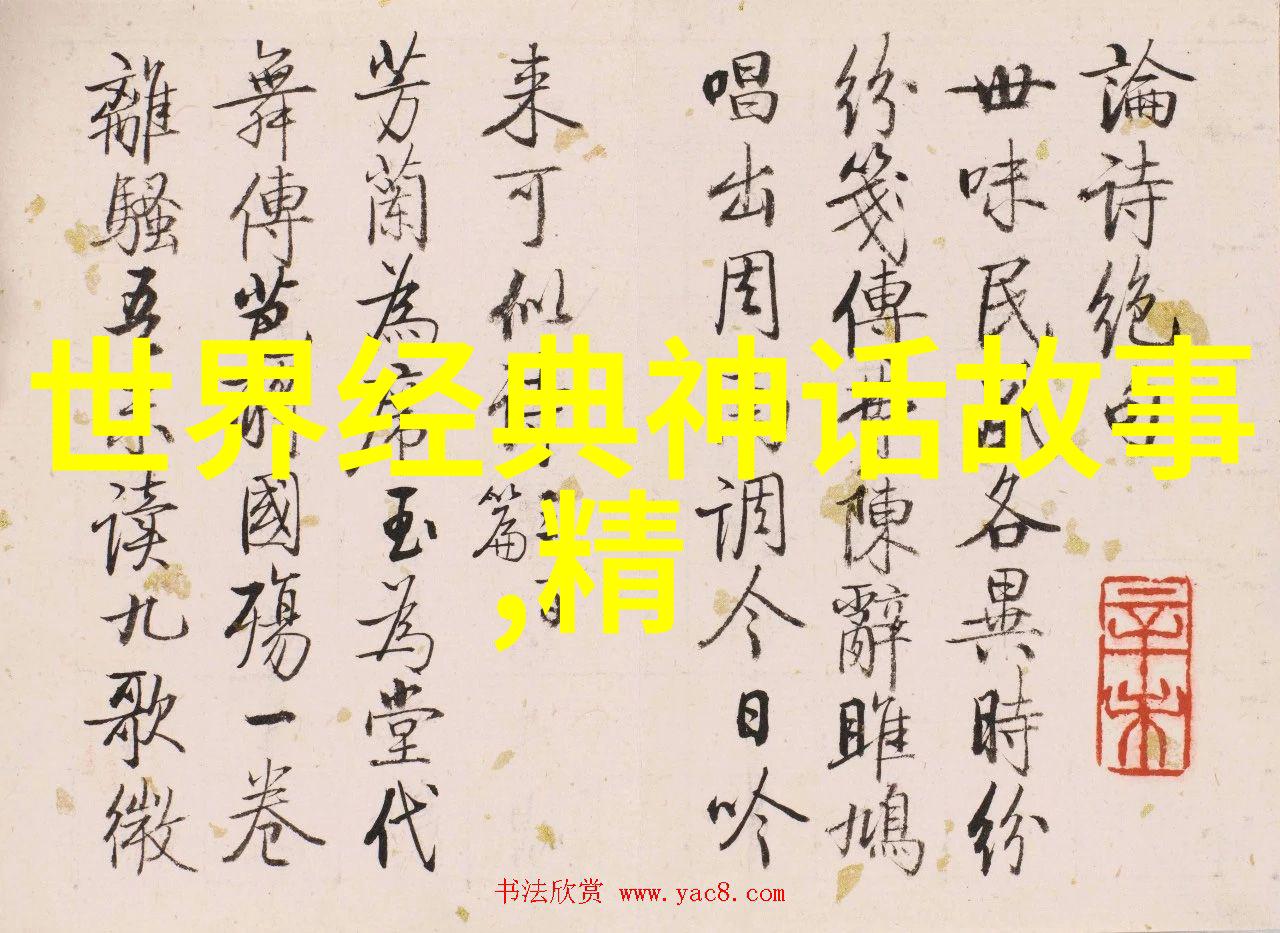 論诗絶
世味民各異時纷
纷笺傳世陳辭雎鳩
唱出周南调今日吟
来可似篇
芳蘭為席玉為堂代
舞傳芭國殤一卷
離騷吾未读九歌微
辛未
世界经典神话故事
,精
书法欣赏 www.yac8.com